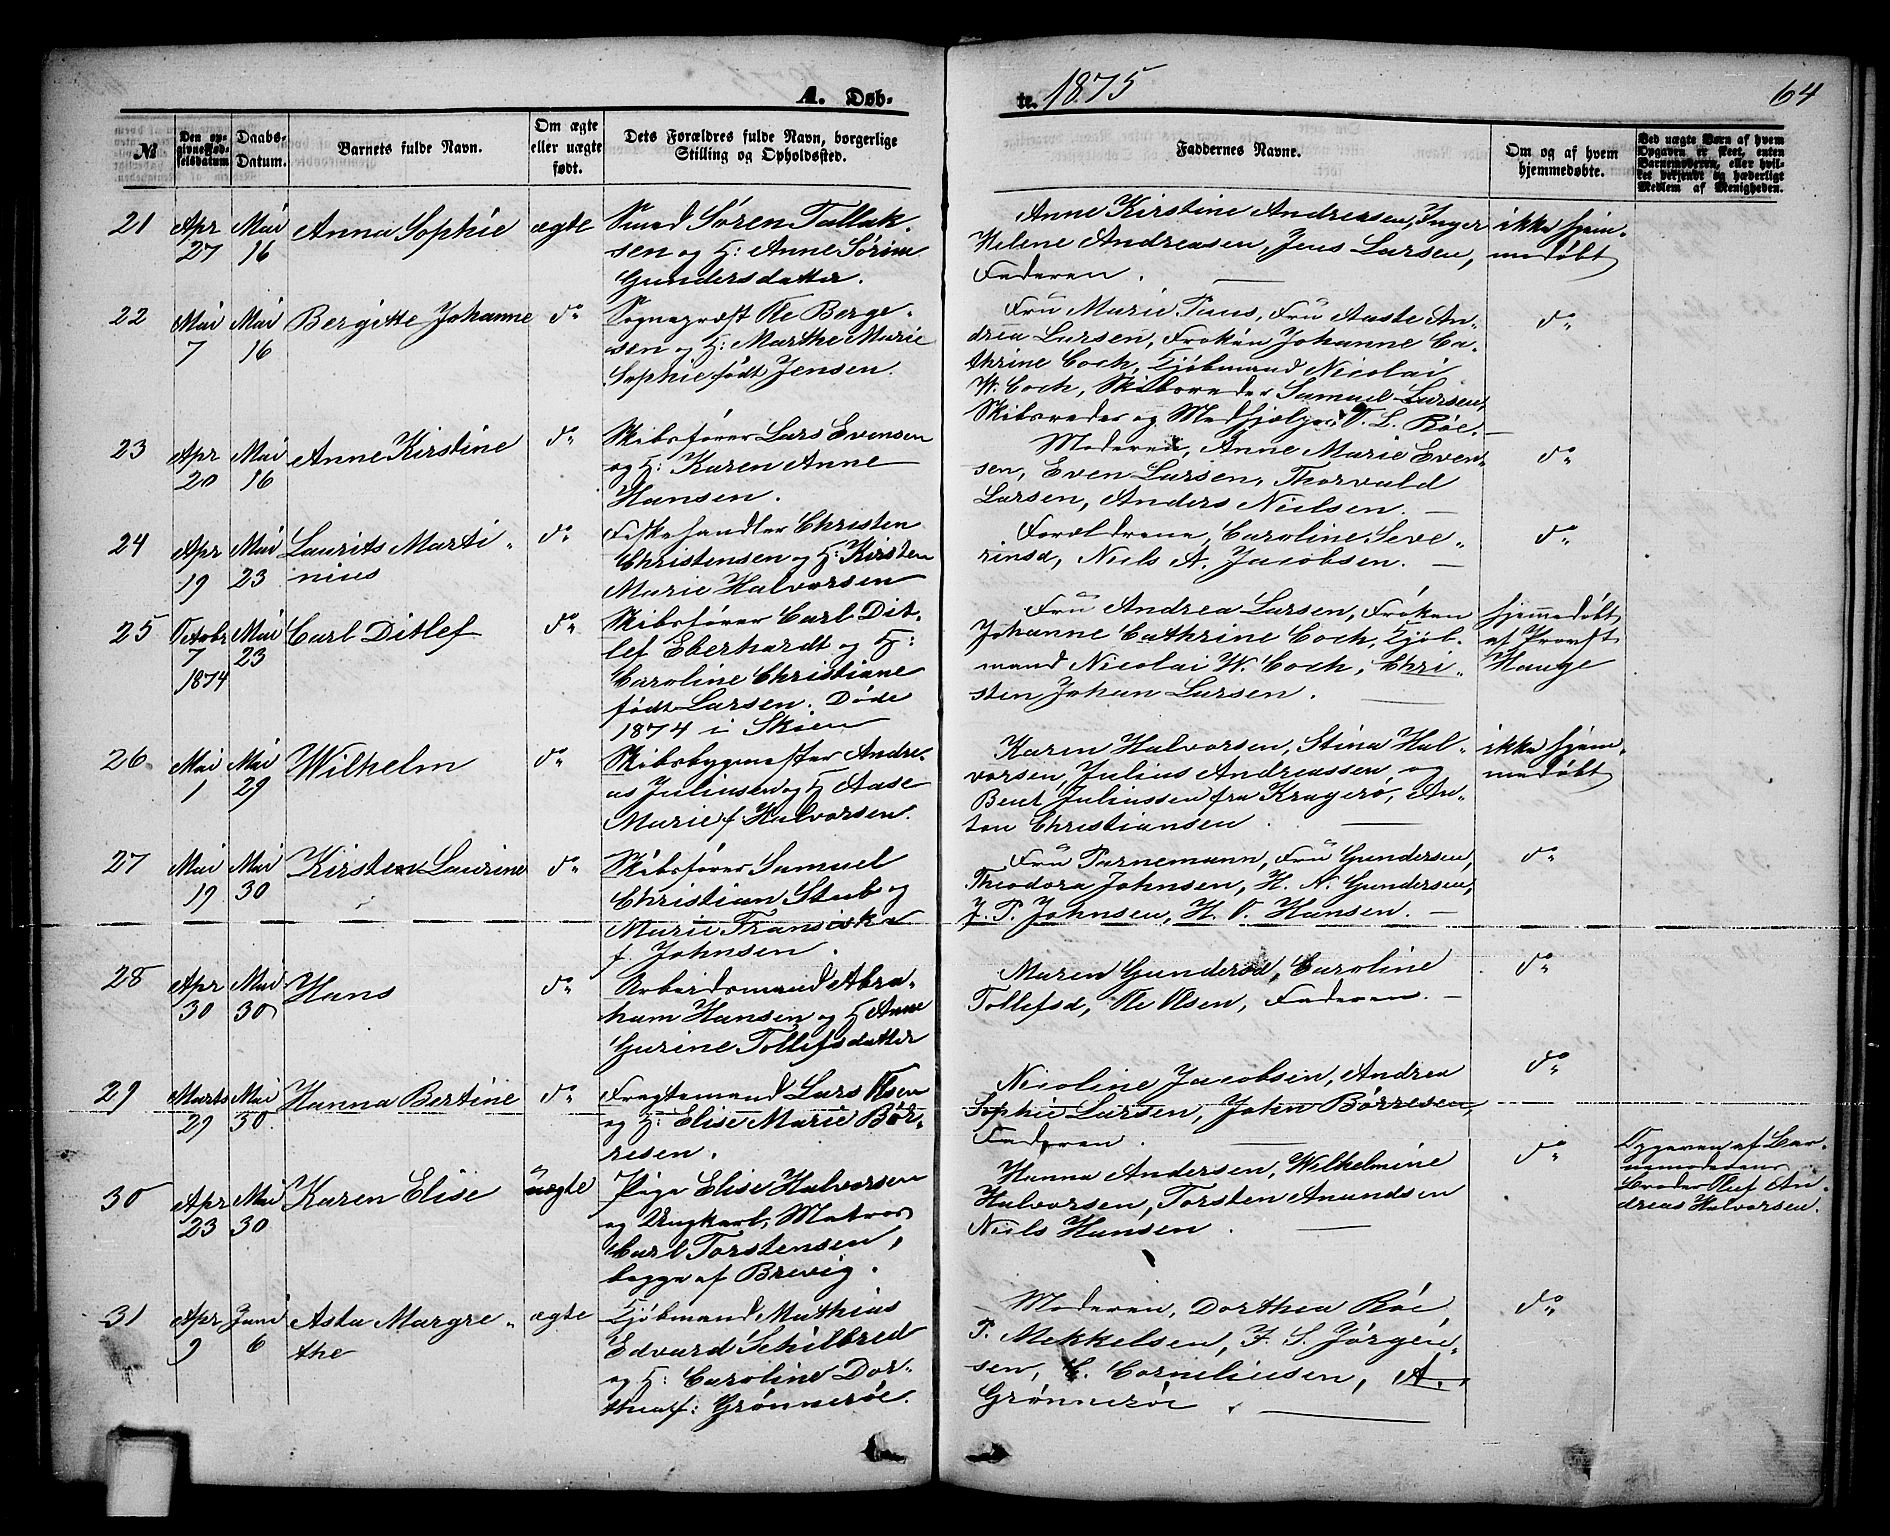 A. Døb-
te. 1875
64
№
Den opgivne Fødselsdatum
Daabs-Datum.
Barnets fulde Navn.
Om ægte eller uægte født.
Dets Forældres fulde Navn, borgerlige Stilling og Opholdssted.
Faddernes Navne.
Om og af hvem hjemmedøbte.
Ved uægte Børn af hvem Opgaven er skeet, enten Barnemoderen, eller hvilket bekjendt og hæderligt Medlem af Menigheden.
21 Apr 27 Mai 16 Anna Sophie ægte
Søren Tallak-
sen og H: Anne Sørine
Gundersdatter.
Anne Kirstine Andreasen, Inger
Helene Andreasen, Jens Larsen,
Faderen.
ikke hjem-
medøbt
22 Mai 7 Mai 16 Bergitte Johanne do
Sognepræst Ole Berge-
sen og H: Marthe Marie
Sophie født Jensen.
Fru Marie Paus, Fru Aaste An-
drea Larsen, Frøken Johanne Ca-
thrine Coch, Kjøbmand Nicolai
W. Coch, Skibsreder Samuel Larsen,
Skibsreder og Medhjælper O. L. Röe.
do
23 Apr 20 Mai 16 Anne Kirstine do
Skibsfører Lars Evensen
og H: Karen Anne
Hansen.
Moderen, Anne Marie Even-
sen, Even Larsen, Thorvald
Larsen, Anders Nielsen.
do
24 Apr 19 Mai 23 Laurits Marti-
nius do
Fiskehandler Christen
Christensen og H: Kirsten
Marie Halvorsen
Forældrene, Caroline Seve-
rinsd, Niels A. Jacobsen.
do
25 Octobr 7 1874 Mai 23 Carl Ditlef do
Skibsfører Carl Dit-
lef Eberhardt og H:
Caroline Christiane
født Larsen. Døde
1874 i Skien
Fru Andrea Larsen, Frøken
Johanne Cathrine Coch, Kjöb-
mand Nicolai W. Coch, Chri-
sten Johan Larsen.
hjemmedøbt
af Provst
Hauge
26 Mai 1 Mai 29 Wilhelm do
Skibsbygmester Andre-
as Juliusen og H Aase
Marie f. Halvorsen.
Karen Halvorsen, Stina Hal-
vorsen, Julius Andreassen og
Bent Juliussen fra Kragerø, An-
ton Christiansen.
ikke hjem-
medøbt
27 Mai 19 Mai 30 Kirsten Laurine do
Skibsfører Samuel
Christian Stub og
Marie Franciska
f. Johnsen.
Fru Parnemann, Fru Gundersen,
Theodora Johnsen, H. N. Gundersen,
J. P. Johnsen, H. O. Hansen.
do
28 Apr 30 Mai 30 Hans do
Arbeidsmand Abra-
ham Hansen og H Anne
Gurine Tollefsdatter
Maren Gundersd, Caroline
Tollefsd, Ole Olsen, Faderen.
do
29 Marts 29 Mai 30 Hanna Bertine do
Fragtemand Lars Olsen
og H: Elise Marie Bør-
resen.
Nicoline Jacobsen, Andrea
Sophie Larsen, John Børresen,
Faderen.
do
30 Apr 23 Mai 30 Karen Elise uægte
Pige Elise Halvorsen
og Ungkarl, Matros
Carl Torstensen,
begge af Brevig.
Hanna Andersen, Wilhelmine
Halvorsen, Torsten Anundsen
Niels Hansen.
do
Opgaven af Bar-
nemoderens
Broder Oluf An-
dreas Halvorsen.
31 Apr 9 Juni 6 Asta Margre-
the ægte
Kjöbmand Mathias
Edvard Schilbred
og H: Caroline Dor-
thea f: Grönneröe.
Moderen, Dorthea Röe
P. Mekkelsen, J. S. Jörgen-
sen, C. Corneliusen, A.
Grönneröe.
do